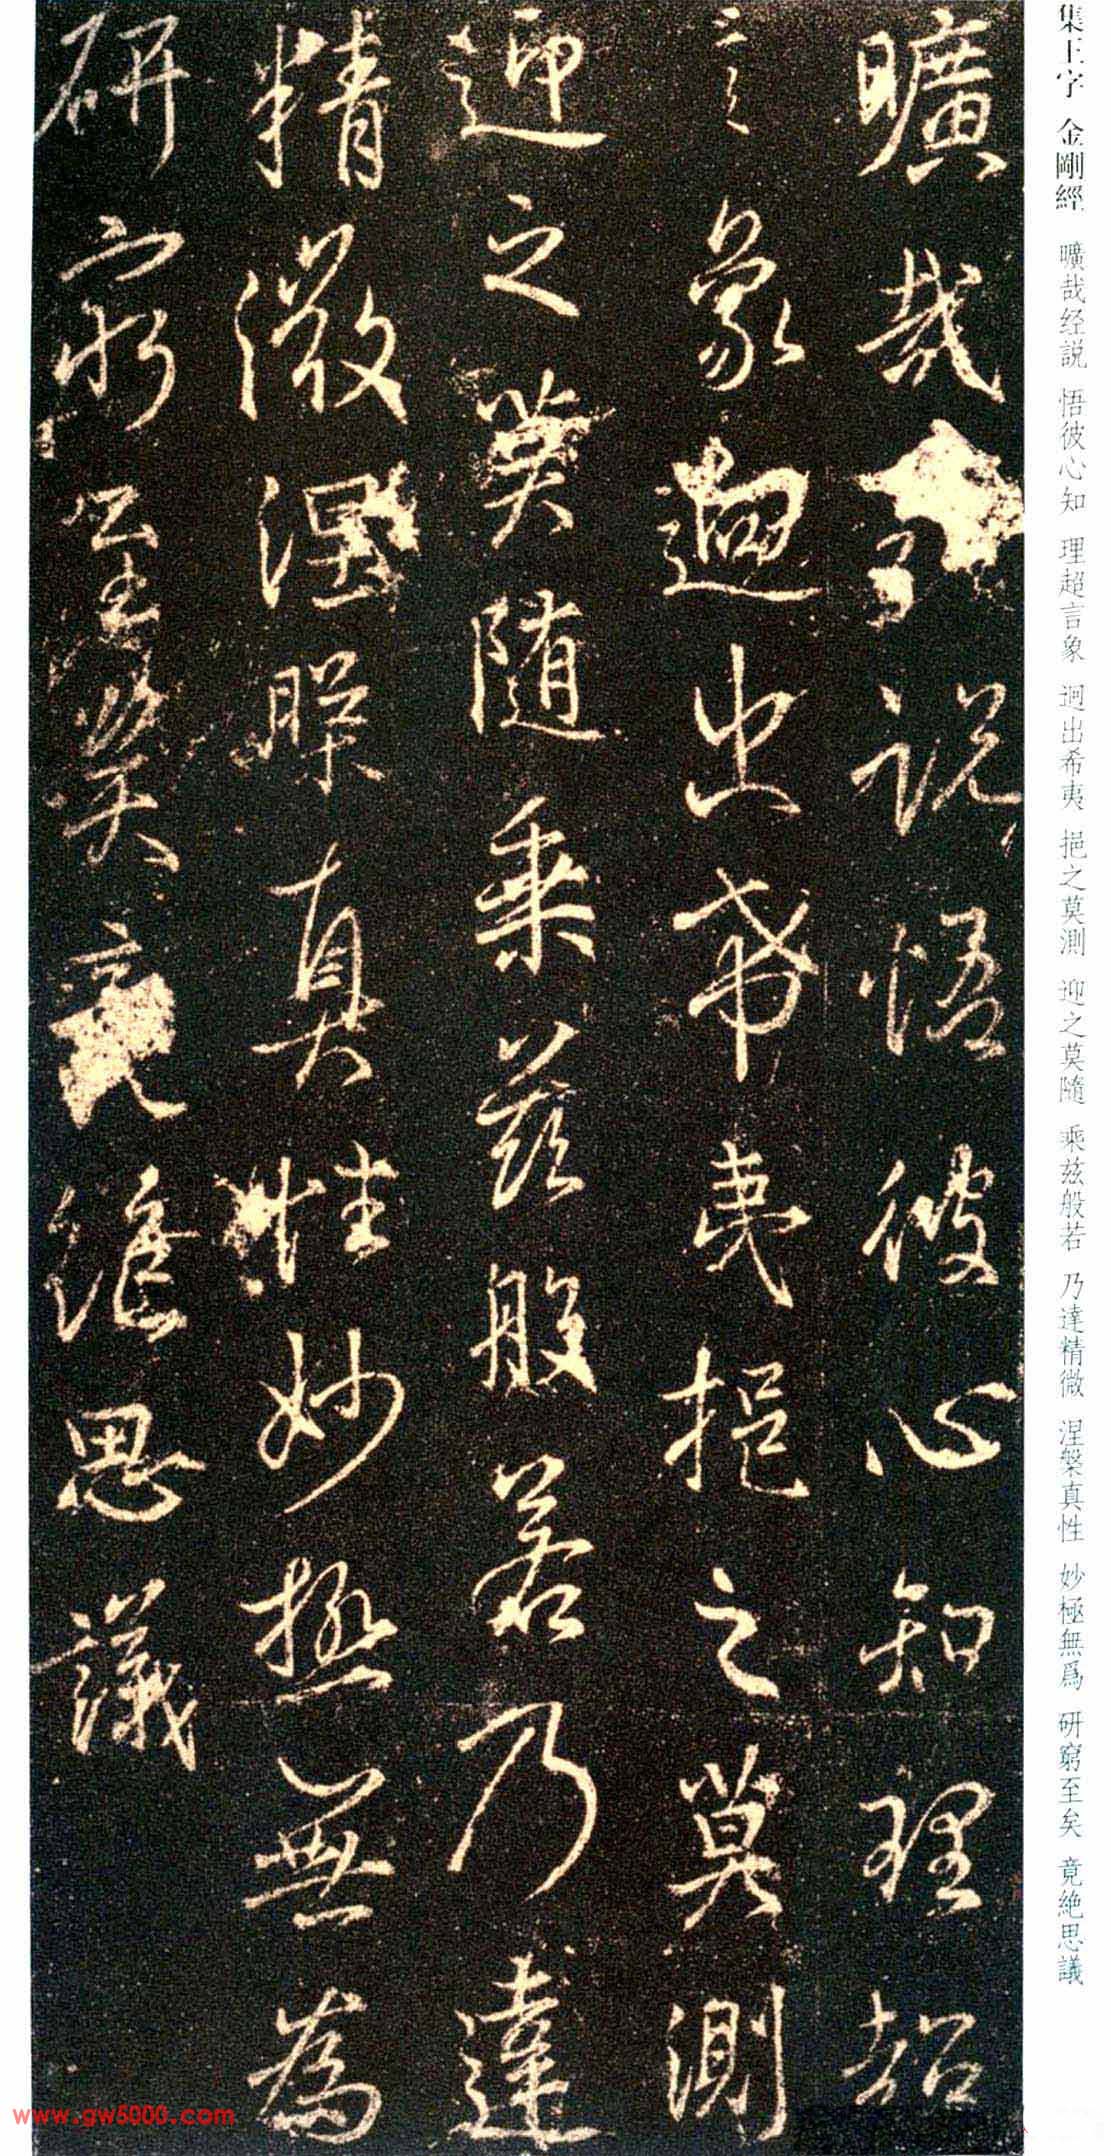 集王字 金剛經 曠哉经説 悟彼心知 理超言象 迥出希夷 挹之莫測 迎之莫隨 乘兹般若 乃達精微 涅槃真性 妙極無爲 研窮至矣 竟絶思議
曠哉説悟彼心知理超
言象迥出希夷挹之莫測
迎之莫随乘兹般若乃達
精微涅槃真性妙極無為
研窮至矣竟絶思議
www.gw5000.com